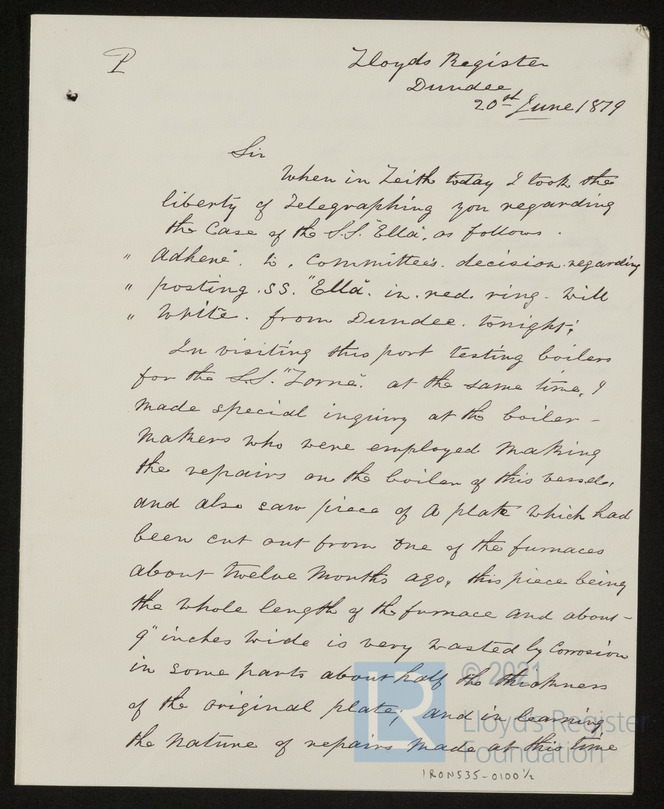 P
Lloyds Register
Dundee
20th June 1879
Sir
When in Leith today I took the
liberty of Telegraphing you regarding
the Case of the S.S. "Ella", as follows.
" Adhere. to. Committee's. decision. regarding
" posting. S.S. "Ella". in. red. ring. will
" write. from Dundee. tonight;"
In visiting this port testing boilers
for the S.S. "Lorne". at the same time, I
made special inquiry at the boiler-
makers who were employed making
the repairs on the boiler of this vessel,
and also saw piece of a plate which had
been cut out from one of the furnaces
about twelve months ago, this piece being
the whole length of the furnace and about
9" inches wide is very wasted by Corrosion
in some parts about half the thickness
of the original plate; and in learning
the nature of repairs made at this time
© 2021
LR
Lloyd's Register
Foundation
IRON535-0100 1/2